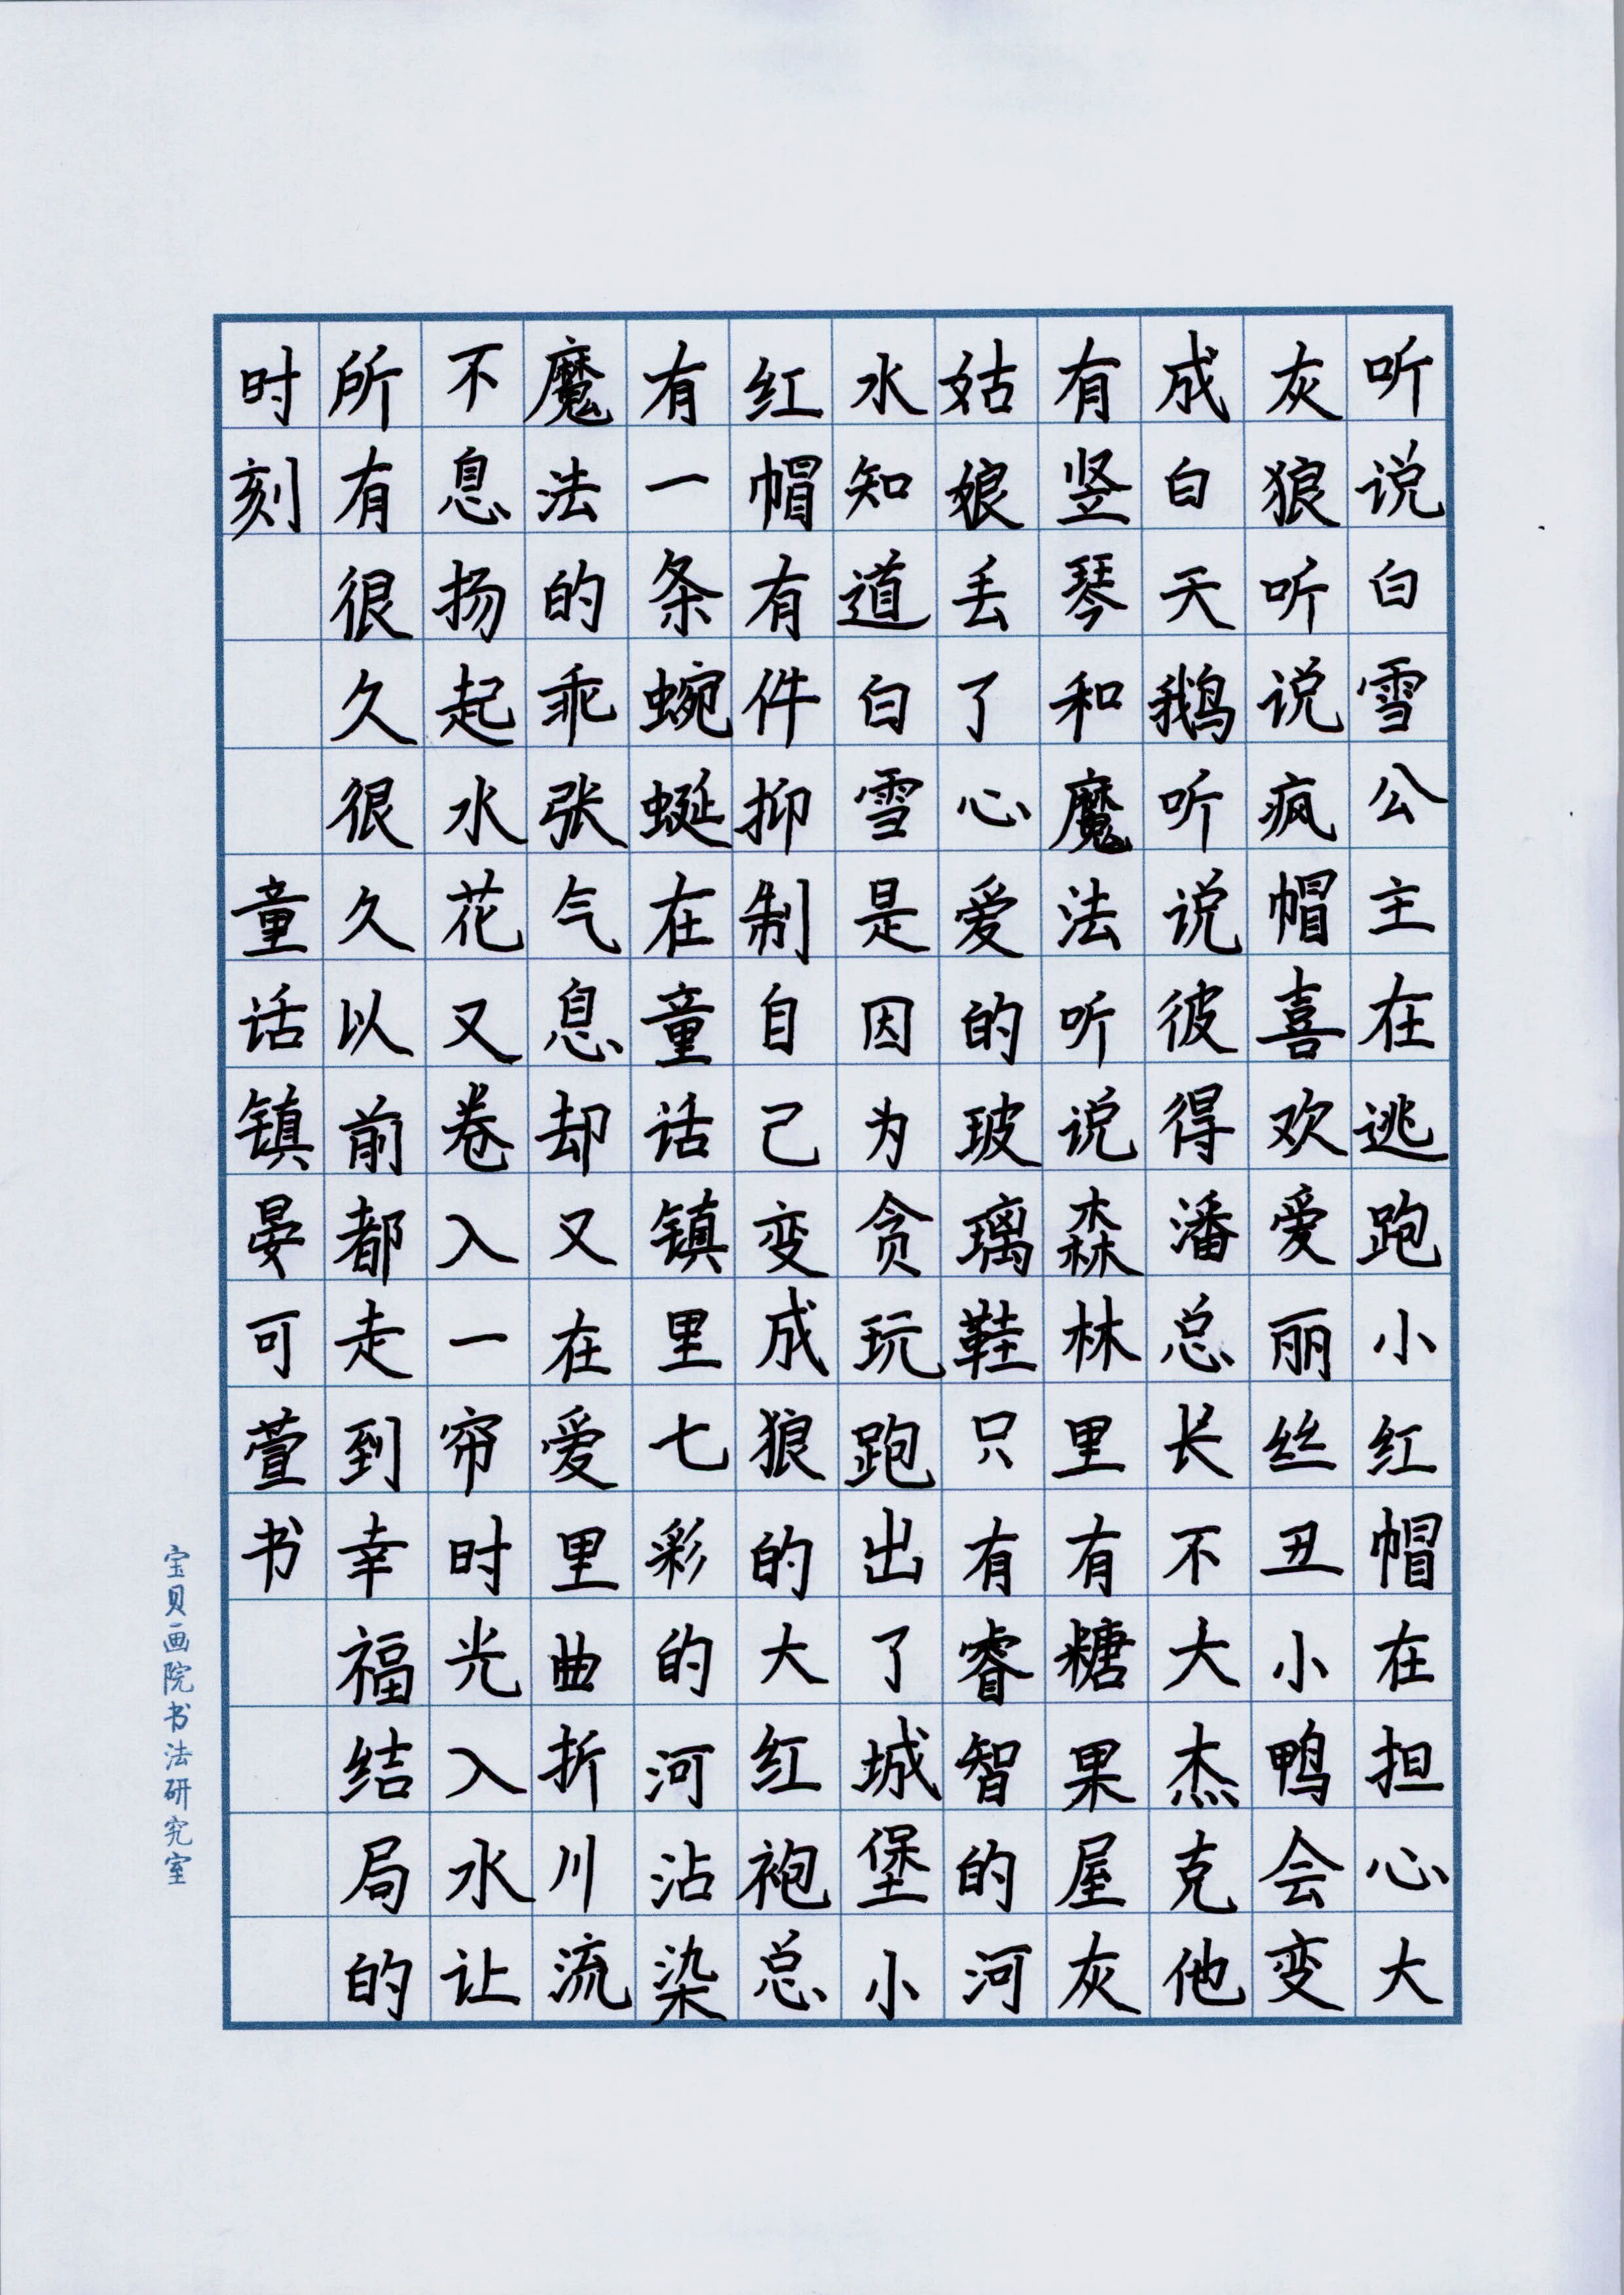 听说白雪公主在逃跑小红帽在担心大
灰狼听说疯帽喜欢爱丽丝丑小鸭会变
成白天鹅听说彼得潘总长不大杰克他
有竖琴和魔法听说森林里有糖果屋灰
姑娘丢了心爱的玻璃鞋只有睿智的河
水知道白雪是因为贪玩跑出了城堡小
红帽有件抑制自己变成狼的大红袍总
有一条蜿蜒在童话镇里七彩的河沾染
魔法的乖张气息却又在爱里曲折川流
不息扬起水花又卷入一帘时光入水让
所有很久很久以前都走到幸福结局的
时刻
童话镇晏可萱书
宝贝画院书法研究室